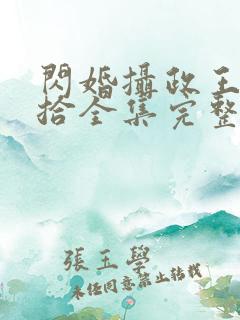 閃婚攝政王
拾全集完整
張玉學
未經同意禁止轉載